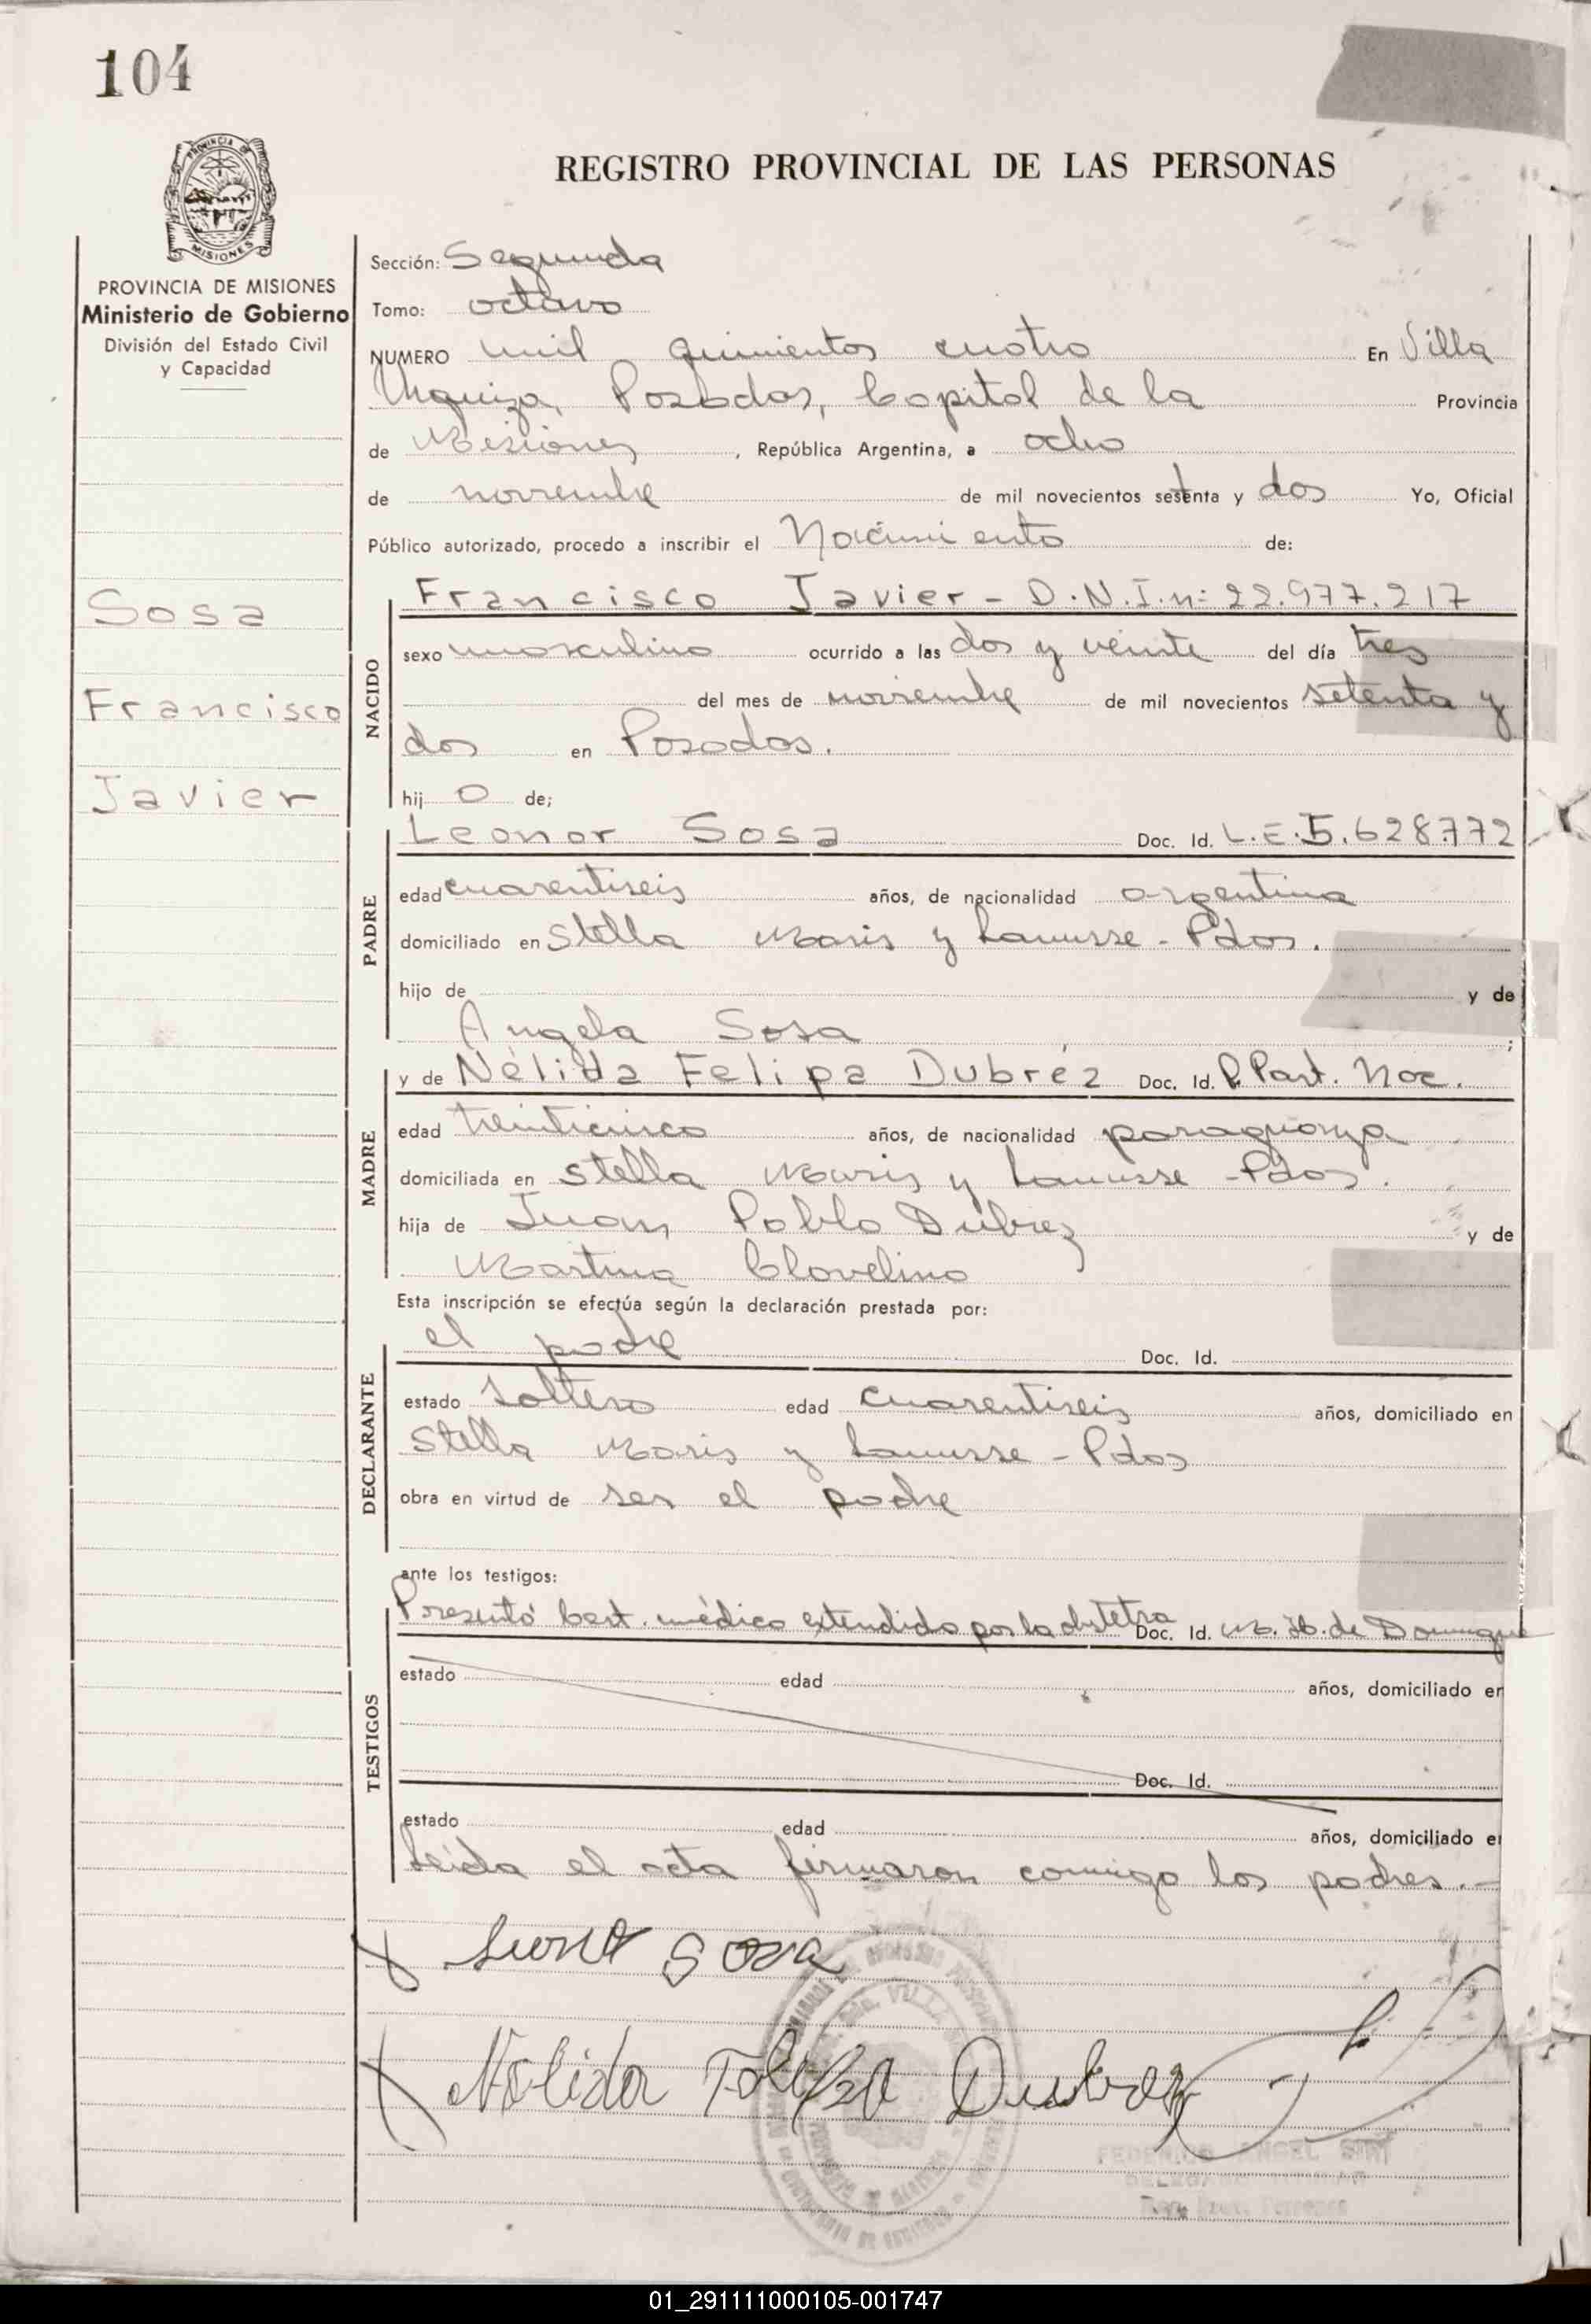 104
PROVINCIA DE
MISIONES
REGISTRO PROVINCIAL DE LAS PERSONAS
PROVINCIA DE MISIONES
Ministerio de Gobierno
División del Estado Civil
y Capacidad
Sosa
Francisco
Javier
Sección: Segunda
Tomo: octavo
NUMERO mil quinientos cuatro En Villa
Urquiza, Posadas, Capital de la Provincia
de Misiones, República Argentina, a ocho
de noviembre de mil novecientos setenta y dos Yo, Oficial
Público autorizado, procedo a inscribir el Nacimiento de:
NACIDO
Francisco Javier - D.N.I. nº 22.977.217
sexo masculino ocurrido a las dos y veinte del día tres
del mes de noviembre de mil novecientos setenta y
dos en Posadas.
hij o de;
PADRE
Leonor Sosa Doc. Id. L.E.5.628.772
edad cuarentiseis años, de nacionalidad argentina
domiciliado en Stella Maris y Lanusse - Pdas.
hijo de y de
Angela Sosa ;
MADRE
y de Nélida Felipa Dubréz Doc. Id. P. Part. Nac.
edad treinticinco años, de nacionalidad paraguaya
domiciliada en Stella Maris y Lanusse - Pdas.
hija de Juan Pablo Dubrez y de
Martina Clovelino
Esta inscripción se efectúa según la declaración prestada por:
DECLARANTE
el padre Doc. Id.
estado soltero edad cuarentiseis años, domiciliado en
Stella Maris y Lanusse - Pdas
obra en virtud de ser el padre
ante los testigos:
TESTIGOS
Presentó Cert. médico extendido por la obstetra Doc. Id. M. H. de
estado edad años, domiciliado en
Doc. Id.
estado edad años, domiciliado e
Leída el acta firmaron conmigo los padres.-
Sosa
Nelida Felipa Dubrez
FEDERICO ANGEL
01_291111000105-001747